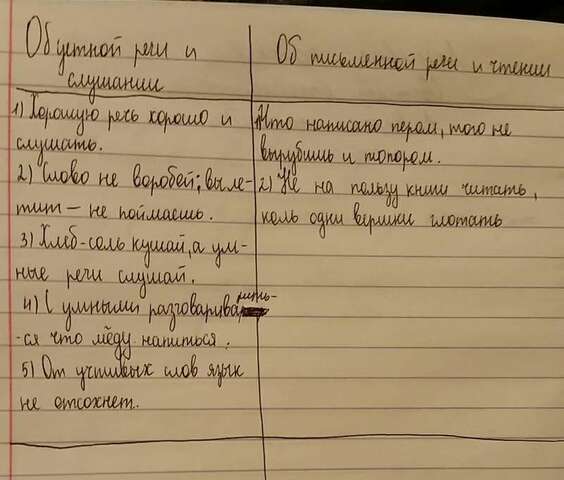 Об устной речи и
слушании
1) Хорошую речь хорошо и
слушать.
2) Слово не воробей; выле-
тит – не поймаешь.
3) Хлеб-соль кушай, а ум-
ные речи слушай.
4) С умными разговаривать-
-ся что мёду напиться.
5) От учтивых слов язык
не отсохнет.
Об письменной речи и чтении
1) Что написано пером, того не
вырубишь и топором.
2) Не на пользу книги читать,
коль одни вершки глотать